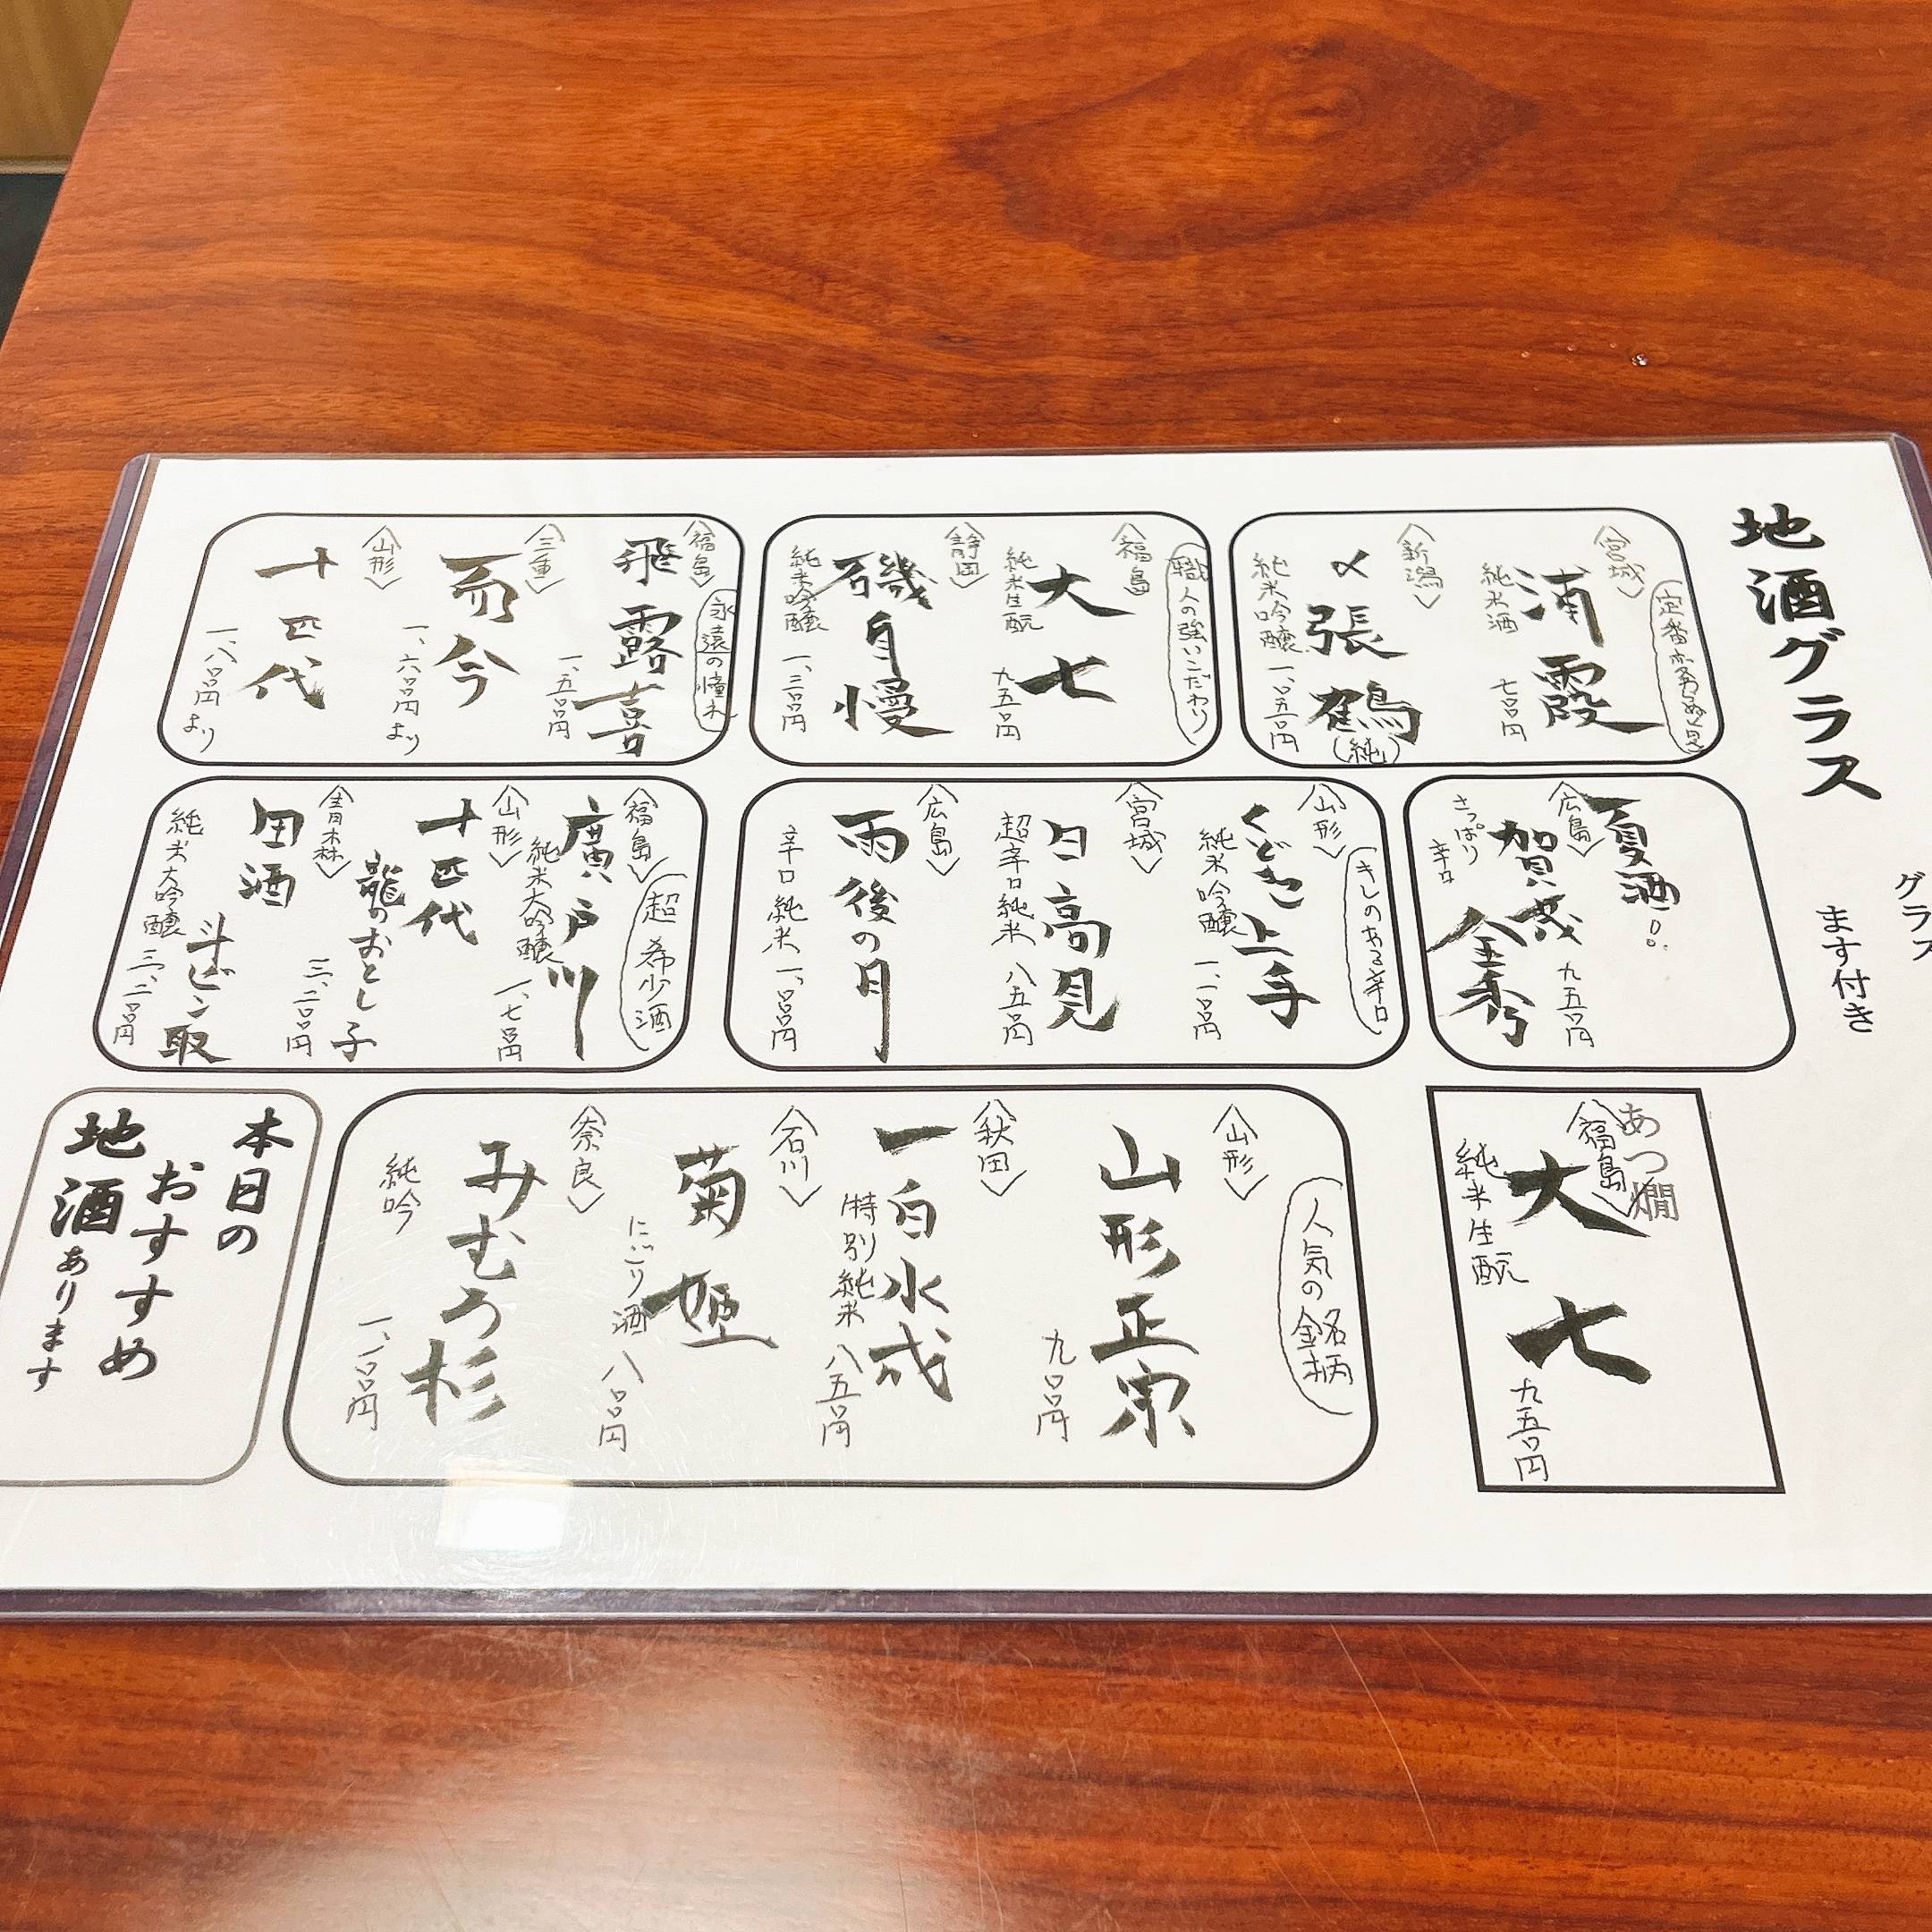 地酒グラス
グラス
ます付き
〈宮城〉
浦霞
純米酒
七〇〇円
〈新潟〉
〆張鶴
(純)
純米吟醸 一、〇五〇円
職人の強いこだわり
〈福島〉
大七
純米生酛
九五〇円
〈静岡〉
磯自慢
純米吟醸 一、三〇〇円
永遠の憧れ
〈福島〉
飛露喜
一、五〇〇円
〈三重〉
而今
一、六〇〇円より
〈山形〉
十四代
一、八〇〇円より
夏酒…
〈広島〉
賀茂金秀
九五〇円
さっぱり
辛口
きレのある辛口
〈山形〉
くどき上手
純米吟醸 一、一〇〇円
〈宮城〉
日高見
超辛口純米 八五〇円
〈広島〉
雨後の月
辛口純米 一、〇〇〇円
超希少酒
〈福島〉
廣戸川
純米大吟醸 一、七〇〇円
〈山形〉
十四代
龍のおとし子
三、二〇〇円
〈青森〉
田酒
斗ビン取
純米大吟醸 三、二〇〇円
あつ燗
〈福島〉
大七
純米生酛
九五〇円
人気の銘柄
〈山形〉
山形正宗
九〇〇円
〈秋田〉
一白水成
特別純米 八五〇円
〈石川〉
菊姫
にごり酒 八〇〇円
〈奈良〉
みむろ杉
純吟
一、一〇〇円
本日の
おすすめ
地酒あります